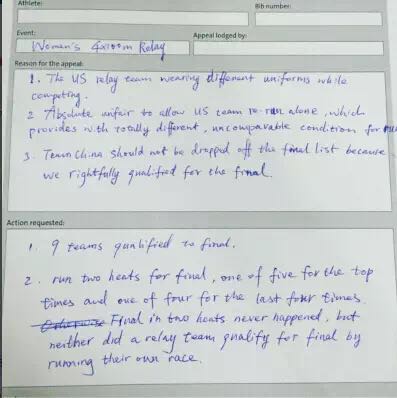 Athlete:
Bib number:
Event:
Appeal lodged by:
Women's 4x100m Relay
Reason for the appeal:
1. The US relay team wearing different uniforms while
competing.
2 Absolute unfair to allow US team re-run alone, which
provides with totally different, uncomparable condition for
3. Team China should not be dropped off the final list because
we rightfully qualified for the final.
Action requested:
1. 9 teams qualified to final.
2. run two heats for final, one of five for the top
times and one of four for the last four times.
Otherwise Final in two heats never happened, but
neither did a relay team qualify for final by
running their own race.